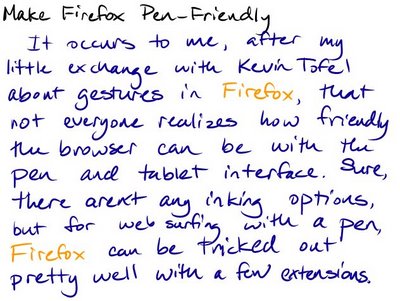 Make Firefox Pen-Friendly
It occurs to me, after my
little exchange with Kevin Tofel
about gestures in Firefox, that
not everyone realizes how friendly
the browser can be with the
pen and tablet interface. Sure,
there aren't any inking options,
but for web surfing with a pen,
Firefox can be tricked out
pretty well with a few extensions.